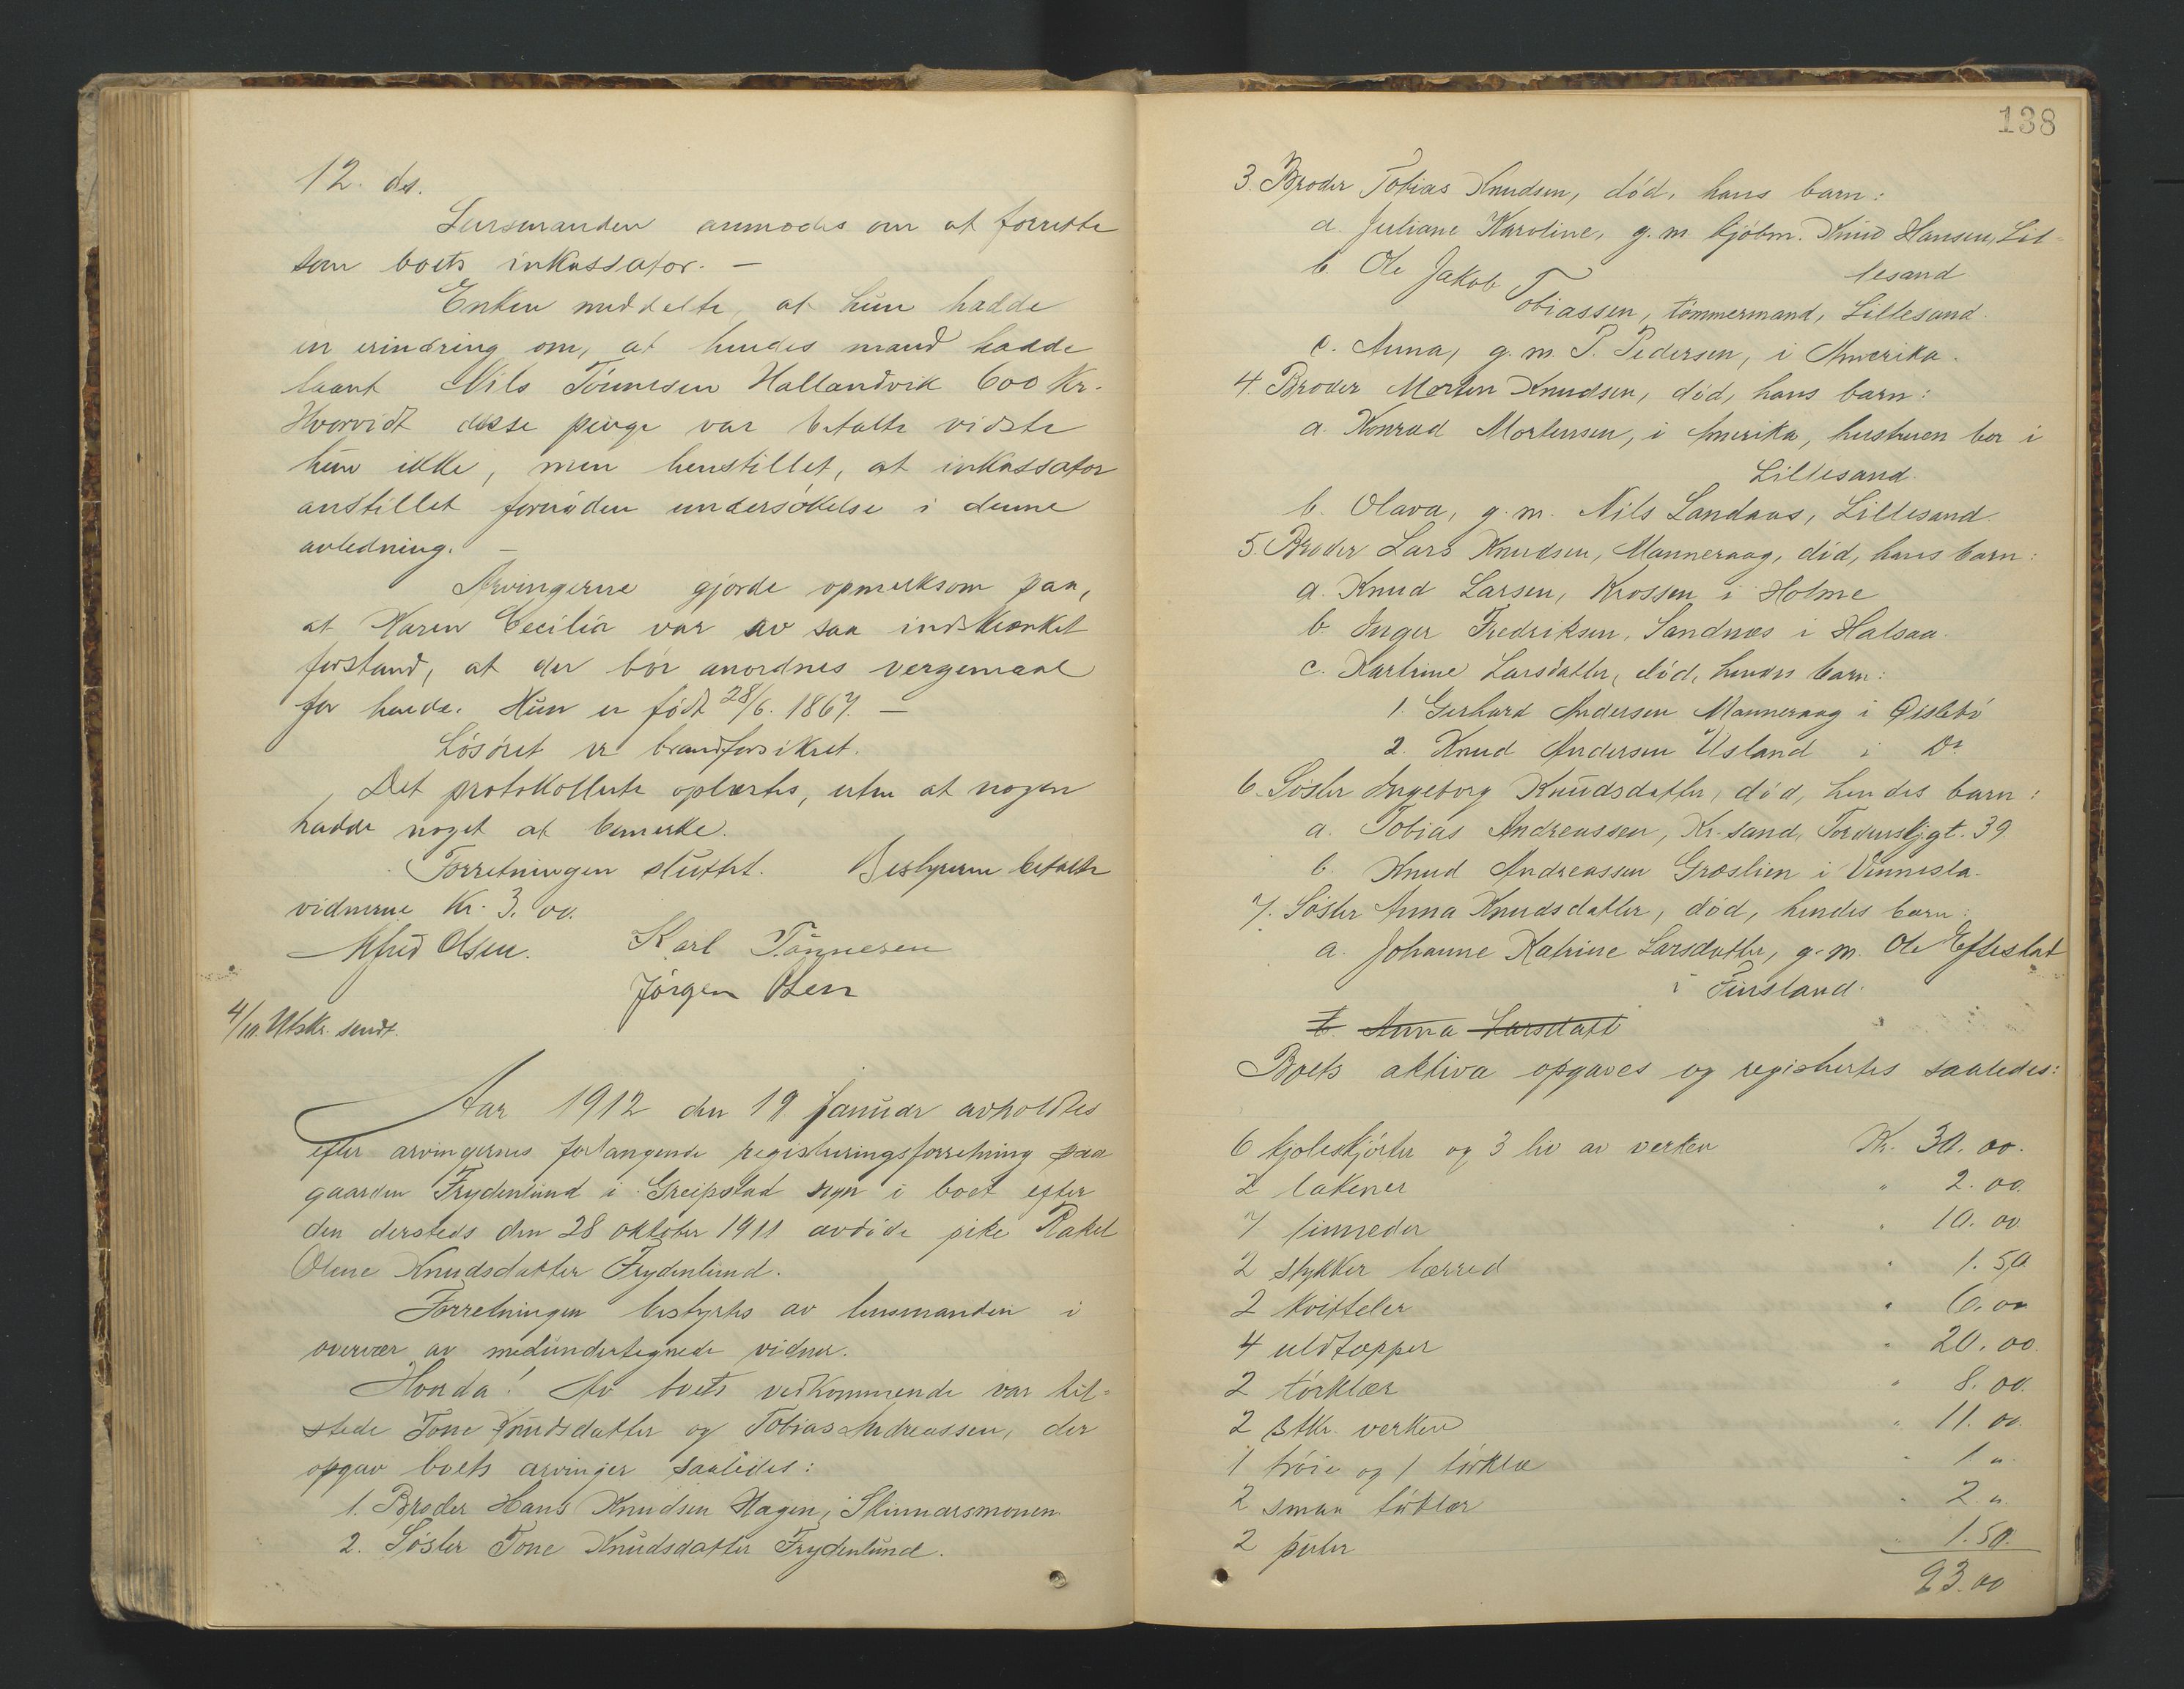 12. ds.
Lensmanden anmodes om at forrette
som boets inkassator. —
Enken meddelte, at hun hadde
en erindring om, at hendes mand hadde
laant Nils Tönnesen Hallandvik 600 Kr.
Hvorvidt disse penge var betalte vidste
hun ikke, men henstillet, at inkassator
anstillet fornöden undersökelse i denne
anledning. —
Arvingerne gjorde opmerksom paa,
at Karen Cecilia var av saa indskrænket
forstand, at der bör anordnes vergemaal
for hende. Hun er födt 28/6. 1867. —
Lösöret er brandforsikret.
Det protokollerte oplæstes, uten at nogen
hadde noget at bemerke.
Forretningen sluttet. Bestyreren betalte
vidnerne Kr. 3.00.
Alfred Olsen. Karl Tönnesen
Jörgen Olsen
4/10. Utskr. sendt.
Aar 1912 den 19 Januar avholdtes
efter arvingernes forlangende registreringsforretning paa
gaarden Frydenlund i Greipstad sogn i boet efter
den dersteds den 28 oktober 1911 avdöde pike Rakel
Olene Knudsdatter Frydenlund.
Forretningen bestyrtes av lensmanden i
overvær av medundertegnede vidner.
Hvorda! Av boets vedkommende var til-
stede Tone Knudsdatter og Tobias Andreassen, der
opgav boets arvinger saaledes:
1. Broder Hans Knudsen Hagen, Skinnarsmonen
2. Söster Tone Knudsdatter Frydenlund.
138
3. Broder Tobias Knudsen, död, hans barn:
a. Juliane Karoline, g.m. kjöbm. Knud Hansen, Lil-
lesand
b. Ole Jakob Tobiassen, tömmermand, Lillesand.
c. Anna, g.m. P. Pedersen, i Amerika.
4. Broder Morten Knudsen, död, hans barn:
a. Konrad Mortensen, i Amerika, hustruen bor i
Lillesand.
b. Olava, g.m. Nils Landaas, Lillesand.
5. Broder Lars Knudsen, Manneraag, död, hans barn:
a. Knud Larsen, Krossen i Holme
b. Inger Fredriksen, Sandnæs i Halsaa.
c. Kartrine Larsdatter, död, hendes barn:
1. Gerhard Andersen Manneraag i Øislebö
2. Knud Andersen Usland i Do
6. Söster Ingeborg Knudsdatter, död, hendes barn:
a. Tobias Andreassen, Kr.sand, Tordenskjgt. 39.
b. Knud Andreassen Groslien i Vennesla.
7. Söster Anna Knudsdatter, död, hendes barn:
a. Johanne Katrine Larsdatter, g.m. Ole Eftestat
i Finsland.
b. Anna Larsdatt
Boets aktiva opgaves og registrertes saaledes:
6 kjoleskjörter og 3 liv av verken Kr. 30.00.
2 lakener " 2.00.
7 linneder " 10.00.
2 stykker lærred " 1.50
2 kvitteler " 6.00
4 uldtæpper " 20.00.
2 törklær " 8.00.
2 stkr. verken " 11.00
1 tröie og 1 törklæ " 1 "
2 smaa törklær " 2 "
2 puter 1.50.
93.00